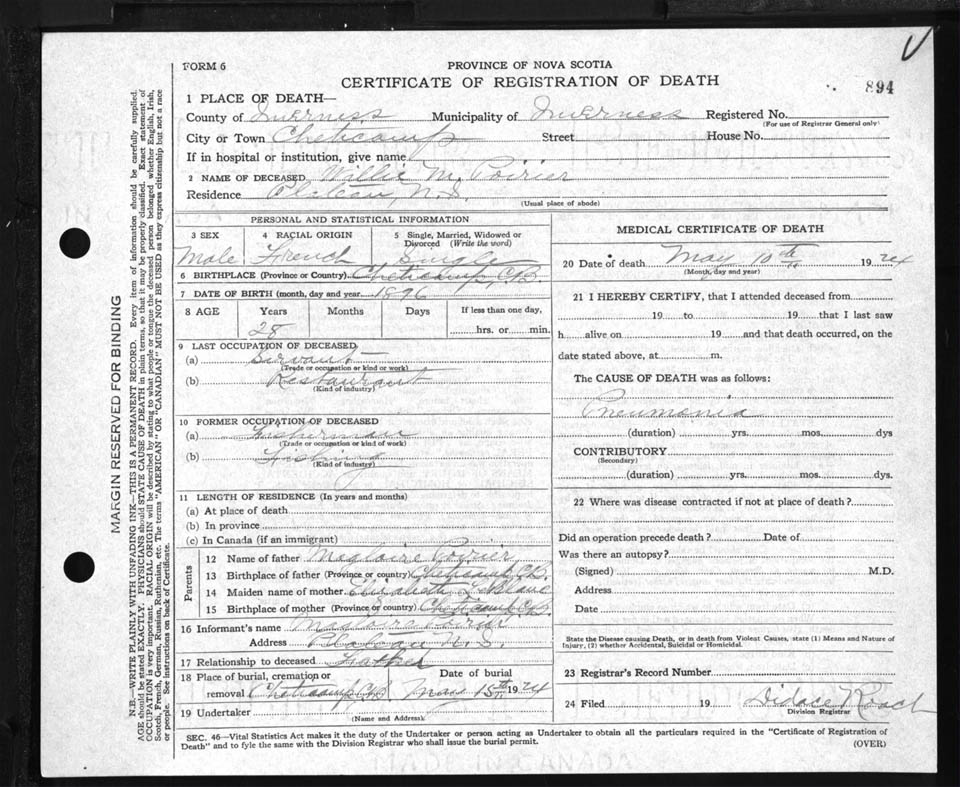 FORM 6
PROVINCE OF NOVA SCOTIA
CERTIFICATE OF REGISTRATION OF DEATH
894
1 PLACE OF DEATH—
County of Inverness Municipality of Inverness Registered No.
(For use of Registrar General only)
City or Town Cheticamp Street House No.
If in hospital or institution, give name
2 NAME OF DECEASED Willie M. Poirier
Residence Plateau, N.S.
(Usual place of abode)
PERSONAL AND STATISTICAL INFORMATION
3 SEX 4 RACIAL ORIGIN 5 Single, Married, Widowed or Divorced (Write the word)
Male French Single
6 BIRTHPLACE (Province or Country) Cheticamp, C.B.
7 DATE OF BIRTH (month, day and year 1896
8 AGE Years Months Days If less than one day,
28 hrs. or min.
9 LAST OCCUPATION OF DECEASED
(a) Servant
(Trade or occupation or kind or work)
(b) Restaurant
(Kind of industry)
10 FORMER OCCUPATION OF DECEASED
(a) Fisherman
(Trade or occupation or kind of work)
(b) Fishing
(Kind of industry)
11 LENGTH OF RESIDENCE (In years and months)
(a) At place of death
(b) In province
(c) In Canada (if an immigrant)
Parents
12 Name of father Magloire Poirier
13 Birthplace of father (Province or country) Cheticamp C.B.
14 Maiden name of mother Elizabeth LeBlanc
15 Birthplace of mother (Province or country) Cheticamp C.B.
16 Informant's name Magloire Poirier
Address Plateau N.S.
17 Relationship to deceased Father
18 Place of burial, cremation or removal Cheticamp C.B. Date of burial May 15th 1924
19 Undertaker
(Name and Address)
MEDICAL CERTIFICATE OF DEATH
20 Date of death May 10th 1924
(Month, day and year)
21 I HEREBY CERTIFY, that I attended deceased from
19 to 19 that I last saw
h alive on 19 and that death occurred, on the
date stated above, at m.
The CAUSE OF DEATH was as follows:
Pneumonia
(duration) yrs. mos. dys
CONTRIBUTORY
(Secondary)
(duration) yrs. mos. dys.
22 Where was disease contracted if not at place of death?
Did an operation precede death? Date of
Was there an autopsy?
(Signed) M.D.
Address
Date
State the Disease causing Death, or in death from Violent Causes, state (1) Means and Nature of
Injury, (2) whether Accidental, Suicidal or Homicidal.
23 Registrar's Record Number
24 Filed 19 Didace Roach
Division Registrar
SEC. 46—Vital Statistics Act makes it the duty of the Undertaker or person acting as Undertaker to obtain all the particulars required in the "Certificate of Registration of
Death" and to fyle the same with the Division Registrar who shall issue the burial permit.
(OVER)
MARGIN RESERVED FOR BINDING
N.B.—WRITE PLAINLY WITH UNFADING INK—THIS IS A PERMANENT RECORD. Every item of information should be carefully supplied.
AGE should be stated EXACTLY. PHYSICIANS should STATE CAUSE OF DEATH in plain terms, so that it may be properly classified. Exact statement of
OCCUPATION is very important. RACIAL ORIGIN will be described by stating to what people or tongue the deceased person belonged whether English, Irish,
Scotch, French, German, Russian, Ruthenian, etc. The terms "AMERICAN" OR "CANADIAN" MUST NOT BE USED as they express citizenship but not a race
or people. See instructions on back of Certificate.